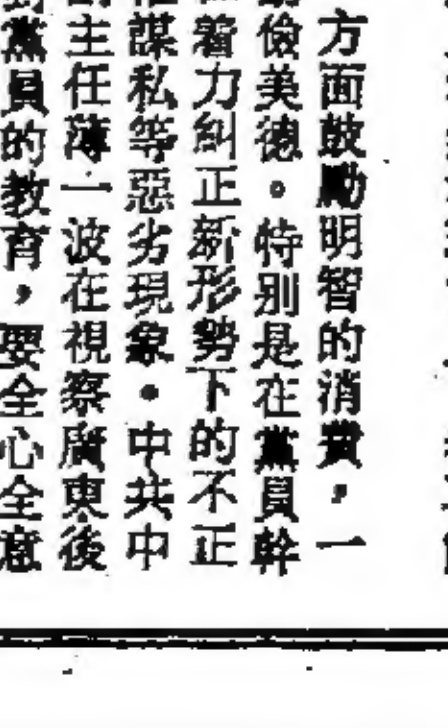 方面鼓勵明智的消費，一
儉美德。特別是在黨員幹
着力糾正新形勢下的不正
謀私等惡劣現象。中共中
主任薄一波在視察廣東後
黨員的教育，要全心全意